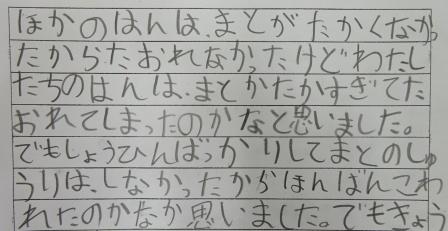 ほかのはんは、まとがたかくなかっ
たからたおれなかったけどわたし
たちのはんは、まとがたかすぎてた
おれてしまったのかなと思いました。
でもしょうひんばっかりしてまとのしゅ
うりは、しなかったからほんばんこわ
れたのかなか思いました。でもきょう